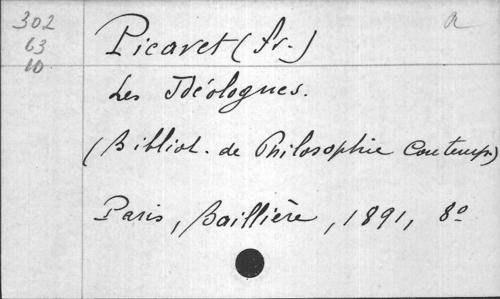 302
63
10
a
Picavet (Fr.)
Les Idéologues.
(Bibliot. de Philosophie Contemp.)
Paris, Baillière, 1891, 8º